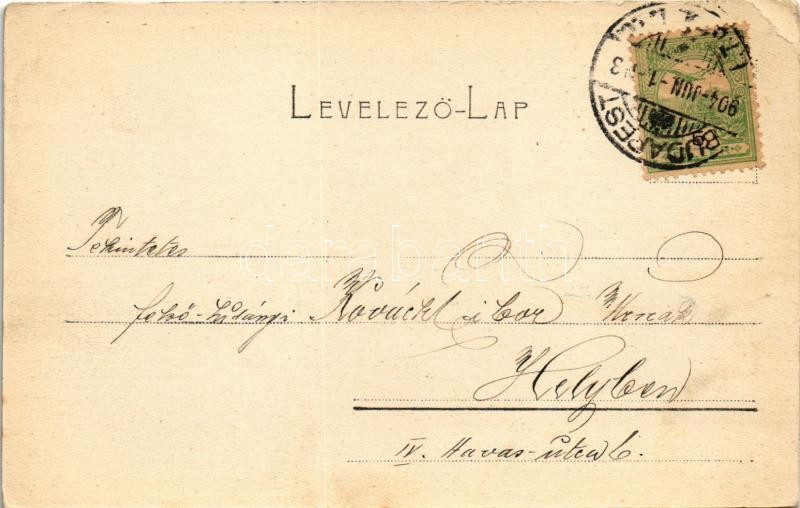 LEVELEZŐ-LAP
BUDAPEST
904 JUN -1
darabanth
Tekintetes
felső- Kovách Tibor Urnak
Helyben
IV. Havas-utca 6.